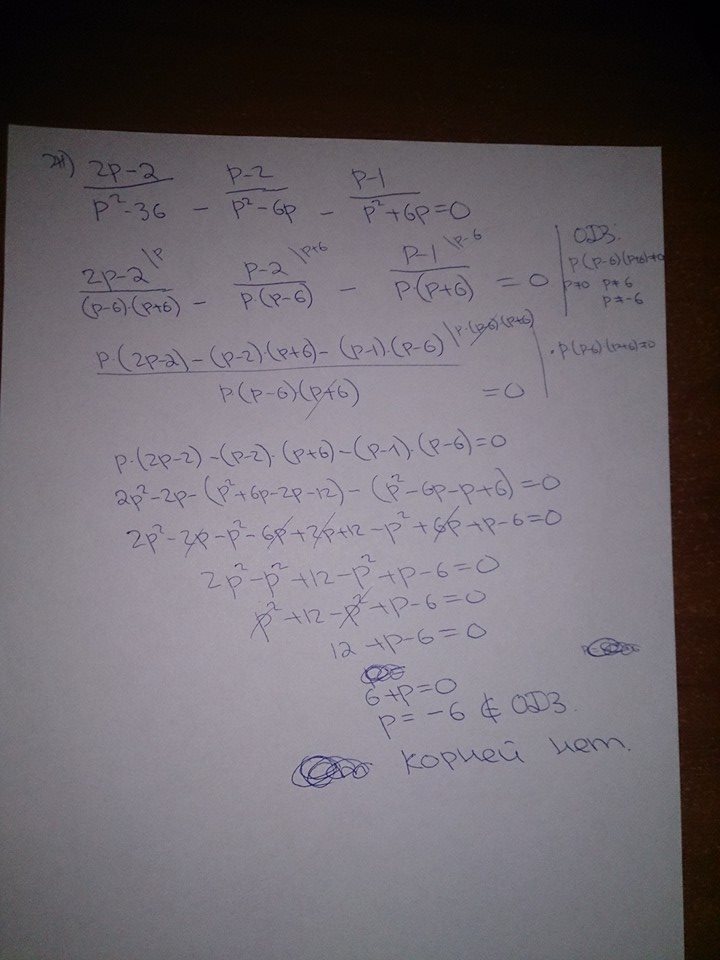 ж) (2p-2)/(p²-36) - (p-2)/(p²-6p) - (p-1)/(p²+6p) = 0
(2p-2 \p)/((p-6)·(p+6)) - (p-2 \p+6)/(p(p-6)) - (p-1 \p-6)/(p(p+6)) = 0
ОДЗ:
p(p-6)(p+6)≠0
p≠0 p≠6
p≠-6
(p·(2p-2)-(p-2)·(p+6)-(p-1)·(p-6))/(p(p-6)(p+6)) = 0 \p·(p-6)(p+6)
p·(2p-2)-(p-2)·(p+6)-(p-1)·(p-6)=0
2p²-2p-(p²+6p-2p-12)-(p²-6p-p+6)=0
2p²-2p-p²-6p+2p+12-p²+6p+p-6=0
2p²-p²+12-p²+p-6=0
p²+12-p²+p-6=0
12+p-6=0
6+p=0
p=-6 ∉ ОДЗ.
корней нет.